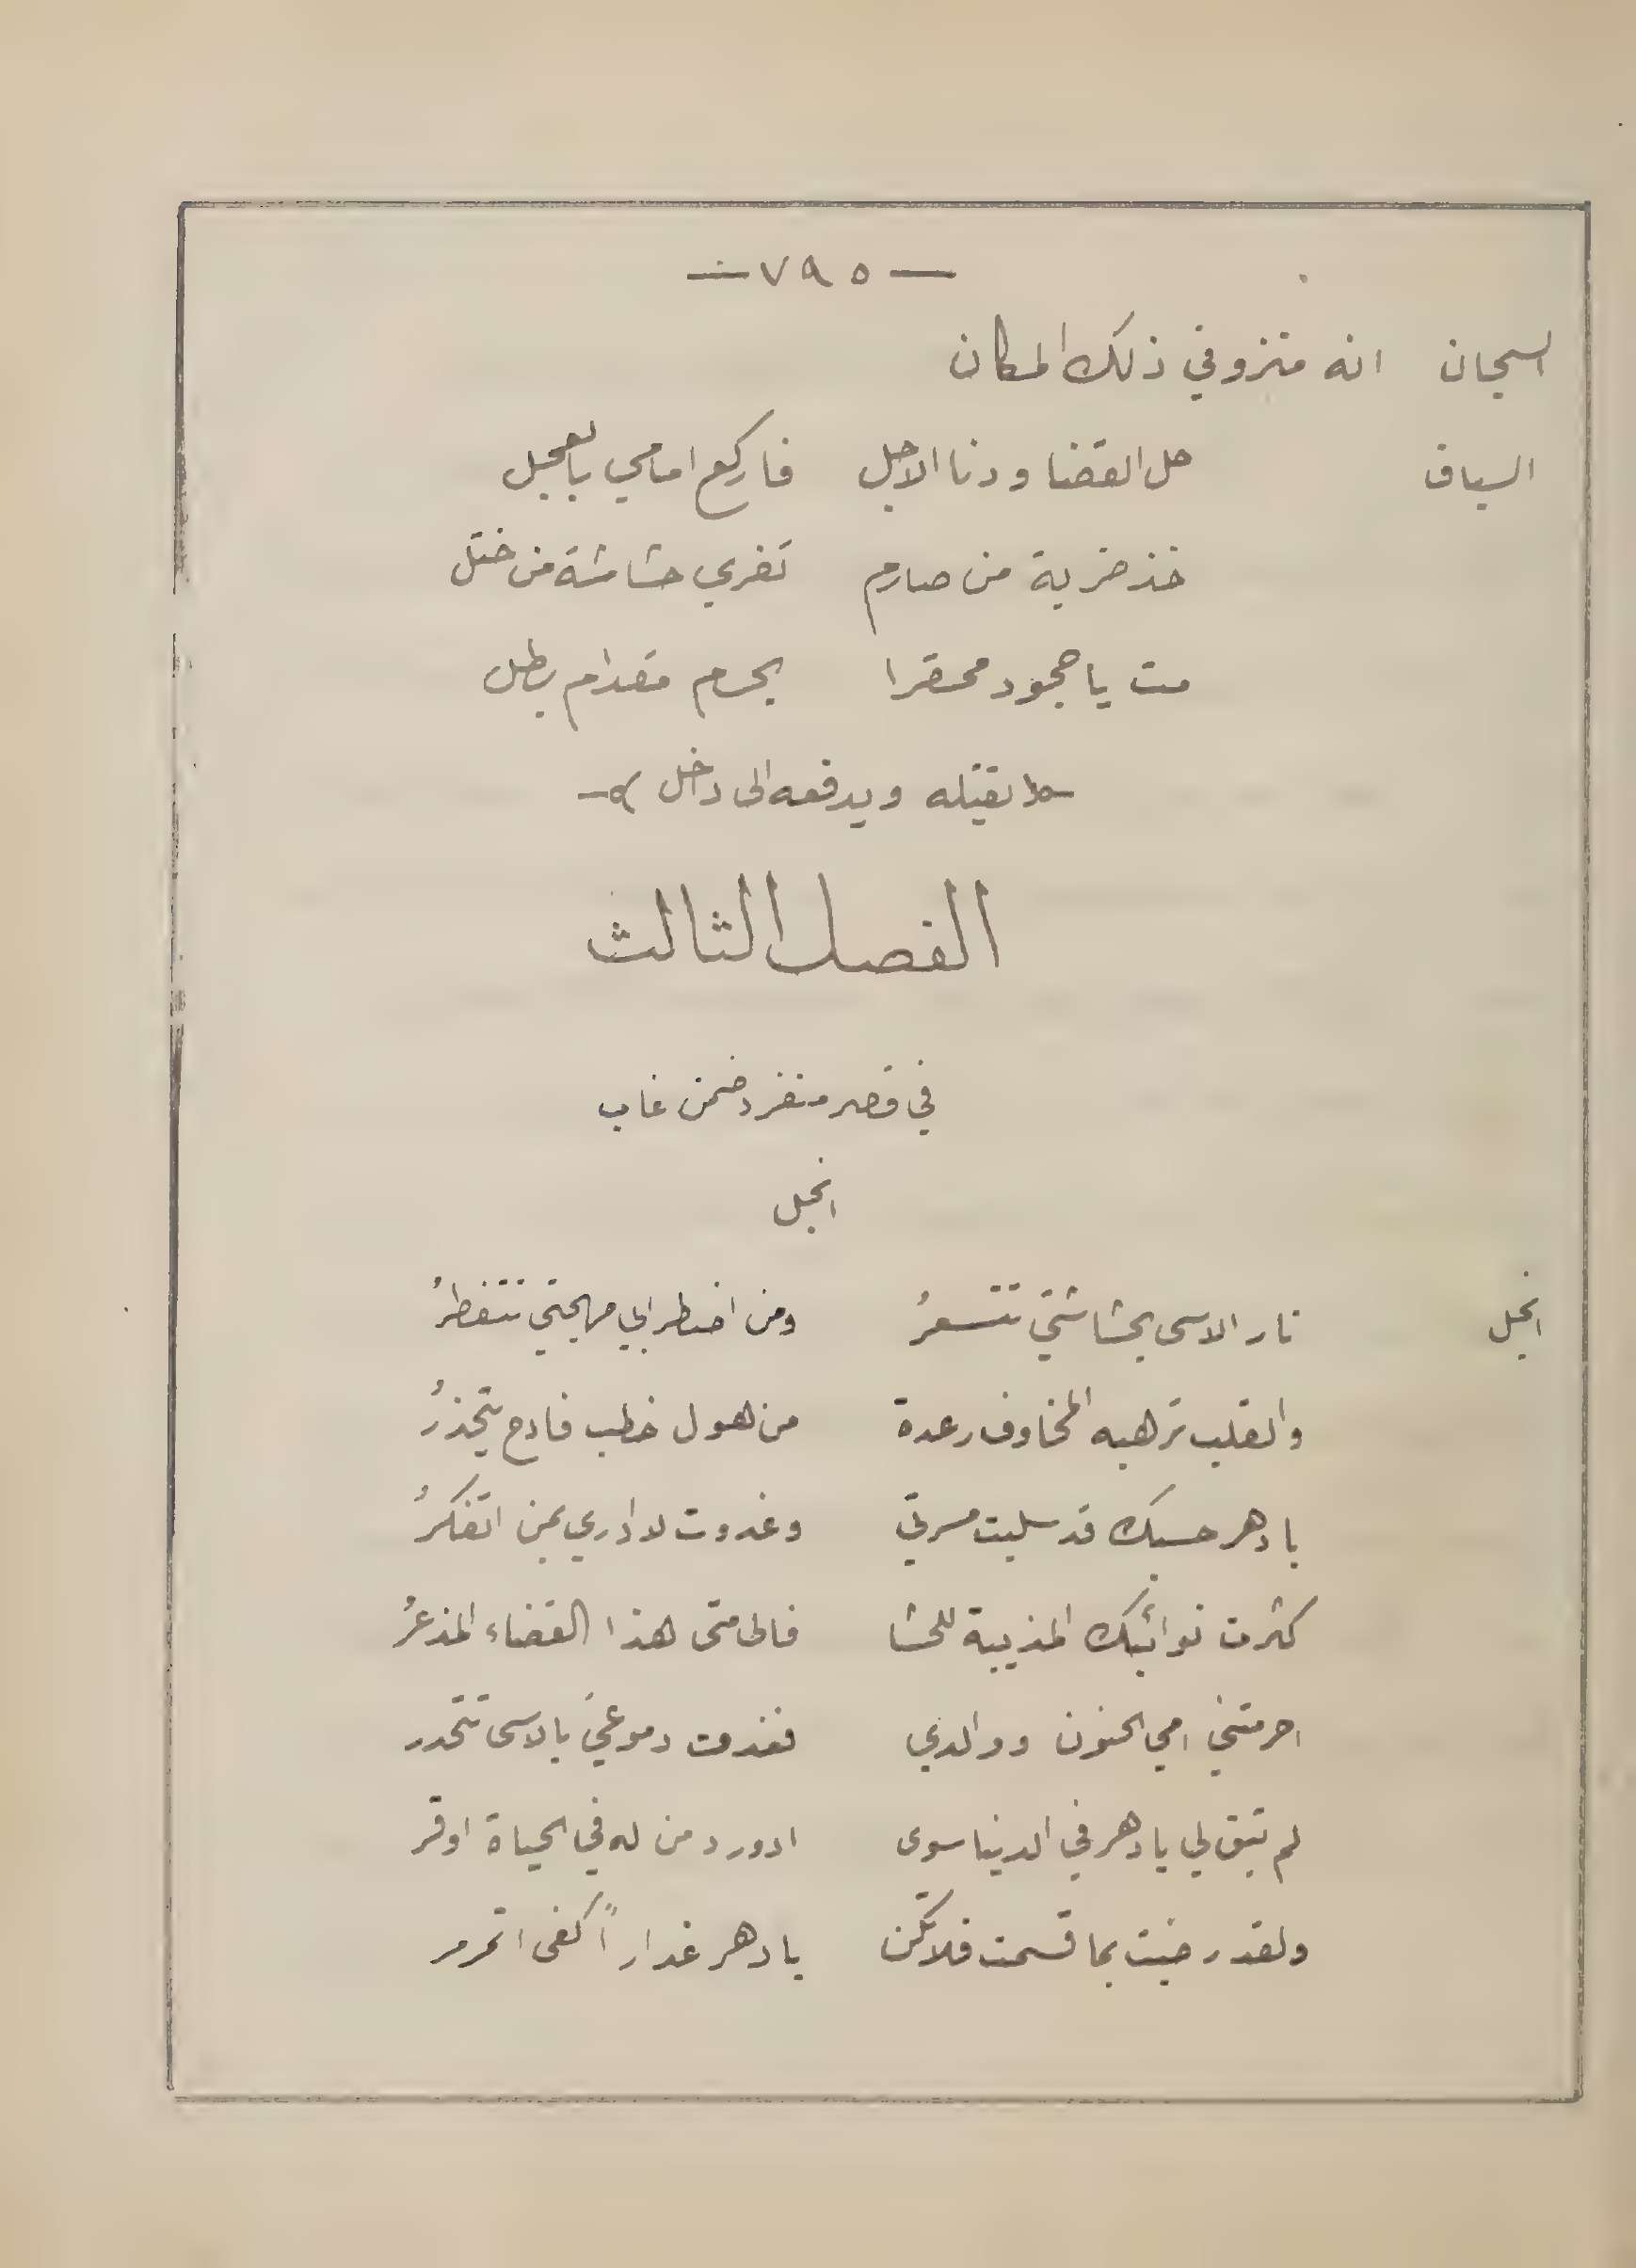 — ٧٩٥ —
السجان انه منزو في ذلك المكان
السياف حل القضا ودنا الاجل فاركع امامي بالعجل
خذ ضربة من صارم تفري حشاشة من ختل
مت يا جحود محقرا بحسام مقدام بطل
يقتله ويدفعه الى داخل
الفصل الثالث
في قصر منفرد ضمن غاب
انجل
انجل نار الاسى بحشاشتي تتسعرُ ومن اضطرابي مهجتي تتفطرُ
والقلب ترهبه المخاوف رعدة من هول خطب فادح يتحذرُ
يا دهر حسبك قد سلبت مسرتي وغدوت لا ادري بمن اتفكرُ
كثرت نوائبك المذيبة للحشا فالى متى هذا القضاء المذعرُ
احرمتني امي الحنون ووالدي فغدت دموعي بالاسى تتحدر
لم تبق لي يا دهر في الدنيا سوى ادورد من له في الحياة اوقر
ولقد رضيت بما قسمت فلا تكن يا دهر غداراً كفى اتمرمر